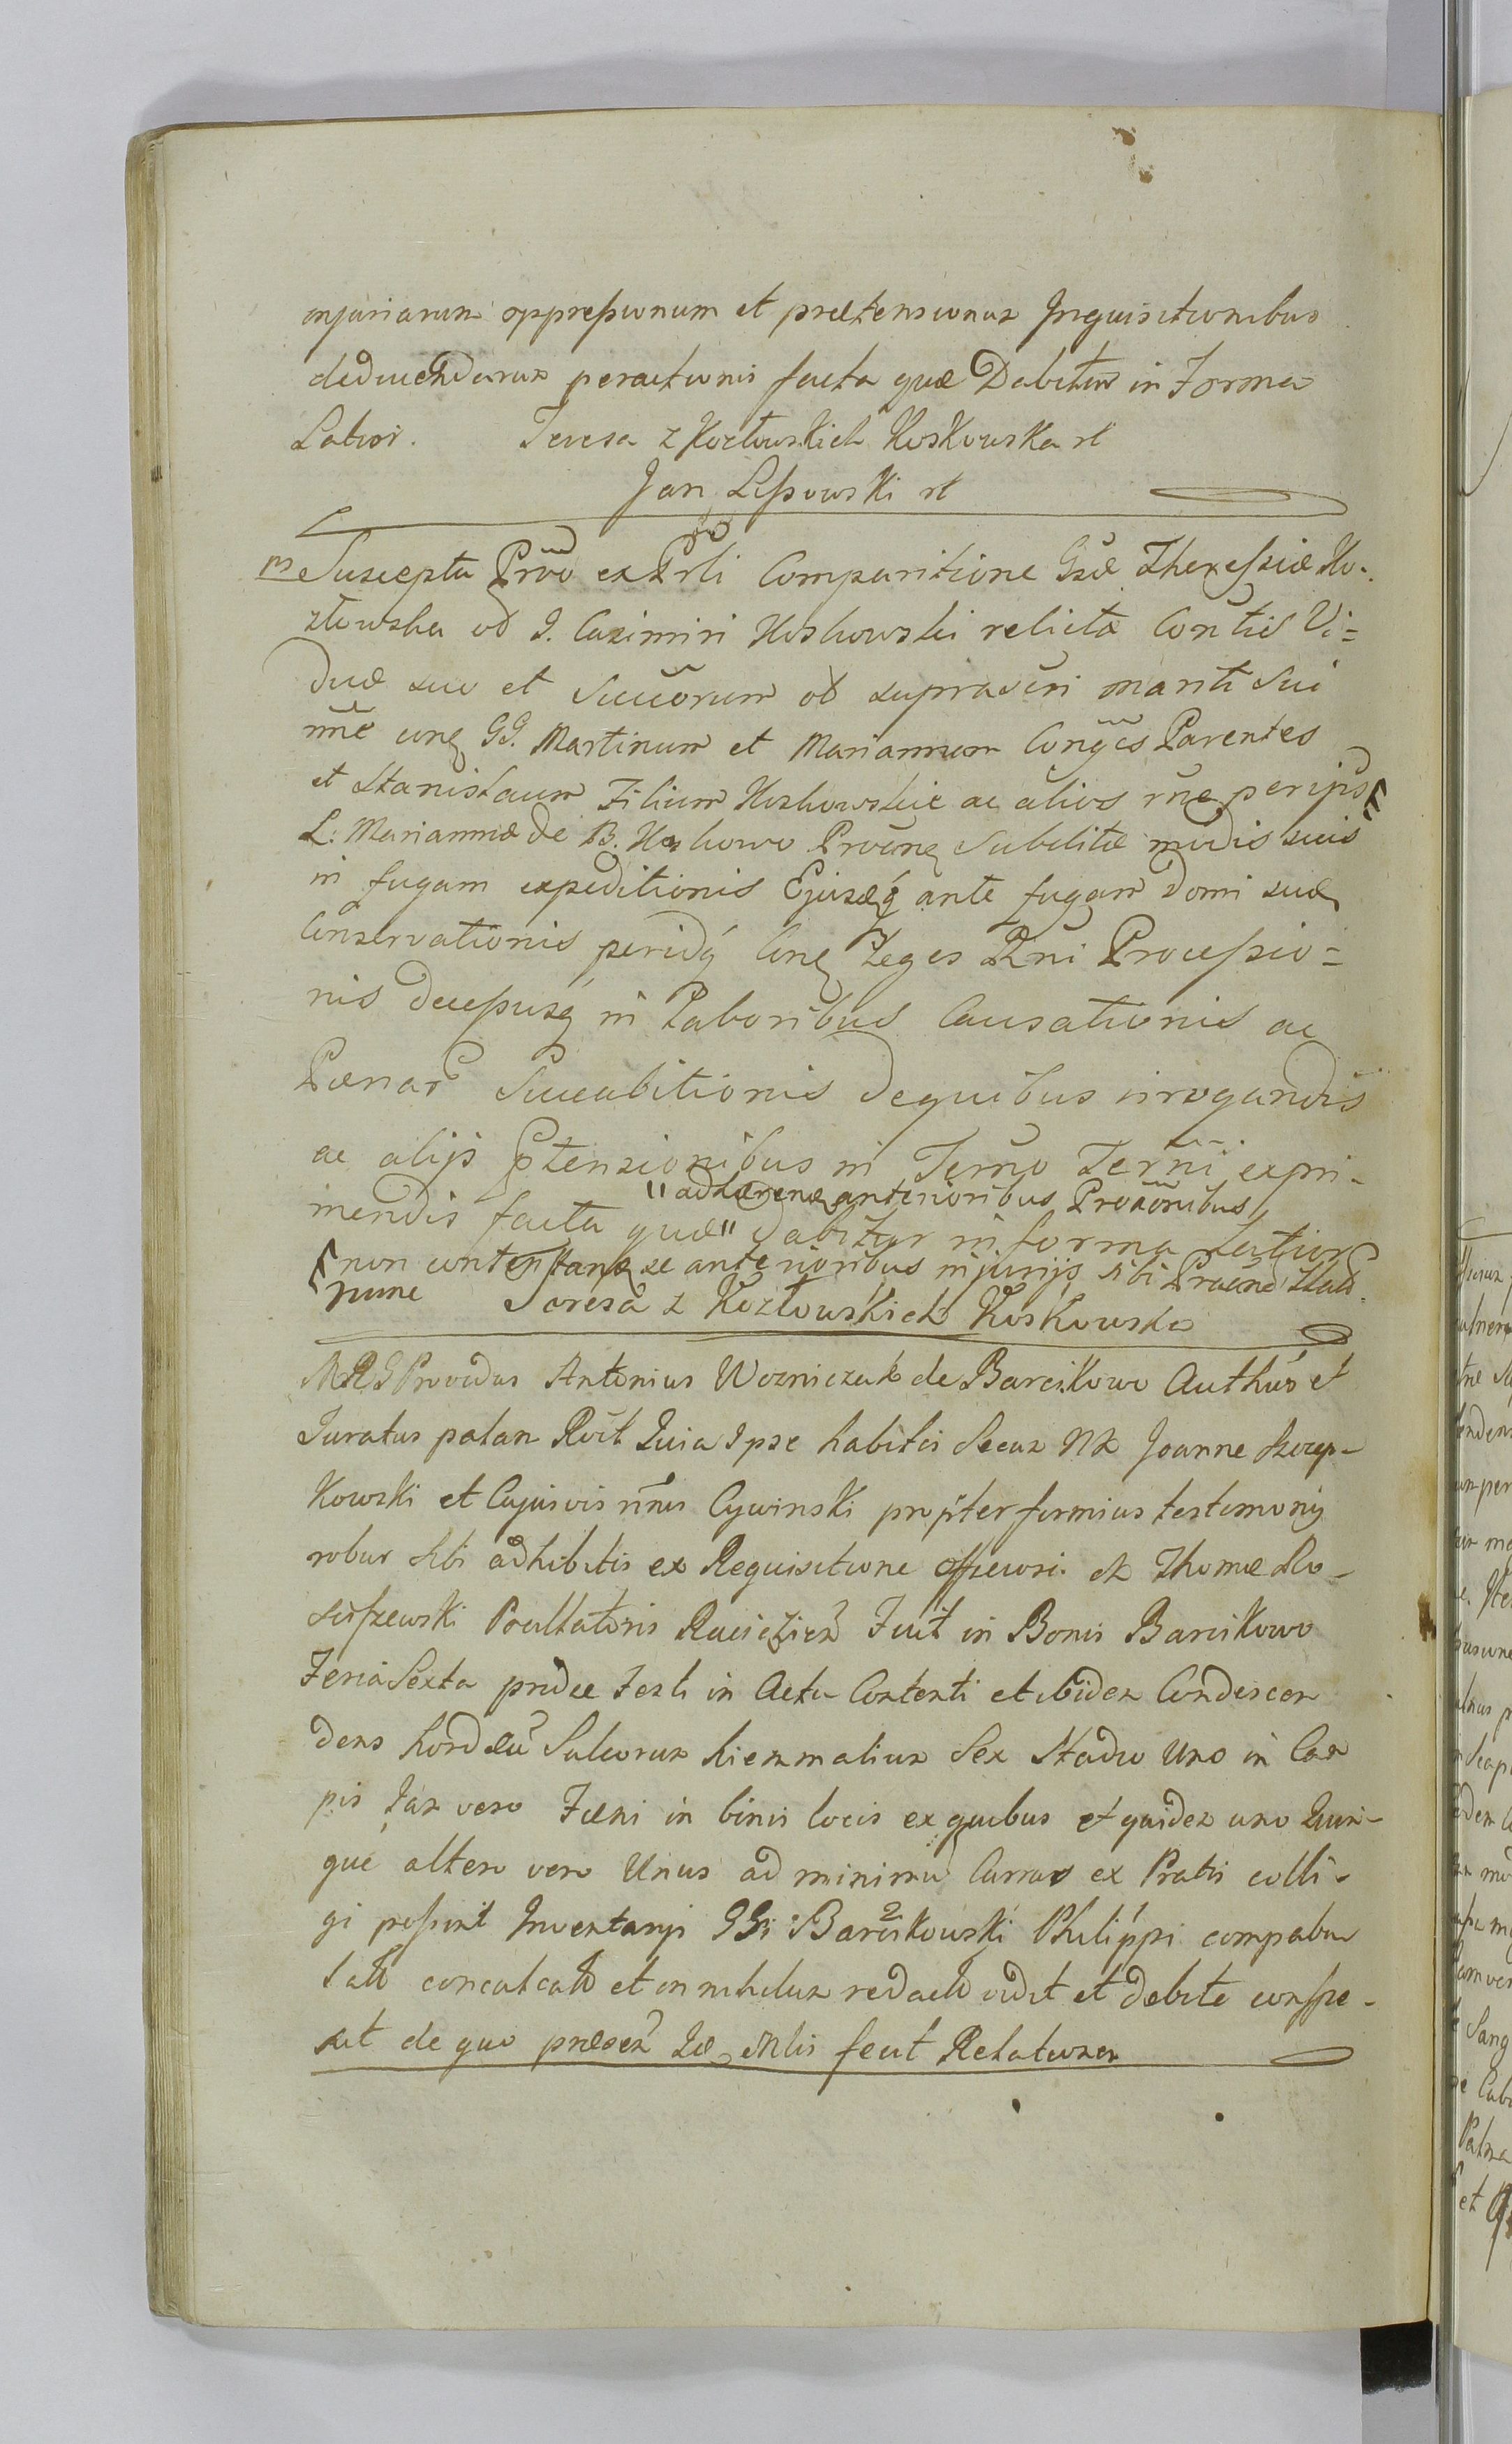 injuriarum oppressionum et praetensionum Inquisitionibus
deducendarum peractionis facta quae Dabitur in Forma
Latiori. Teresa z Kozłowskich Koskowska rt
Jan Lissowski rt
Suscepta Prõo ex Prti Comparitione Gsae Theressiae Ko-
złowska od G. Casimiri Koskowski relicta Contis Vi=
duae suo et Succorum ob suprascri mariti Sui
nne conq GG. Martinum et Mariannam Congēs Parentes
et Stanislaum Filium Koskowskie ac alios rne
L. Mariannae de B. Koskowo Subditae modis suis
in fugam expeditionis Ejusdq ante fugam Domi suae
Conservationis peridq Conq Leges Rni Processio=
nis decessusq in Laboribus Causationis ac
Paenar Succubitionis dequibus irrogandis
ac alijs ptensionibus in Termo Terni expri-
"adhaerenq anterioribus Procōnibus
mendis facta quae" dabitur in forma Latiori
non contentans se anterioribus injurijs sibi
nunc Teresa z Kozłowskich Koskowska
MRG Providus Antonius Wozniczak de Barcikowo Authus et
Juratus palam Rōit Quia Ipse habitis Secum NN Joanne Szczep-
kowski et Cujusvis nnis Cywinski propter firmius testimonij
robur Sibi adhibitis ex Requisitione N Thomae Ro-
sciszewski Pocillatoris Raciążien Fuit in Bonis Barcikowo
Feria Sexta pridie Festi in Actu Contenti et ibidem Condescen
dens hordeu Sulcorum hiemmalium Sex Stadio Uno in Cam
pis Jam vero Faeni in binis locis ex quibus et quidem uno Quin-
que altero vero Unus ad minimu Currus ex Pratis colli-
gi possint Inventarijs GGi Barcikowski Philippi compabu
lato conculcato et in nihilum redacto vidit et debite conspe-
xit de quo praesen Quae Mlis fecit Relationem